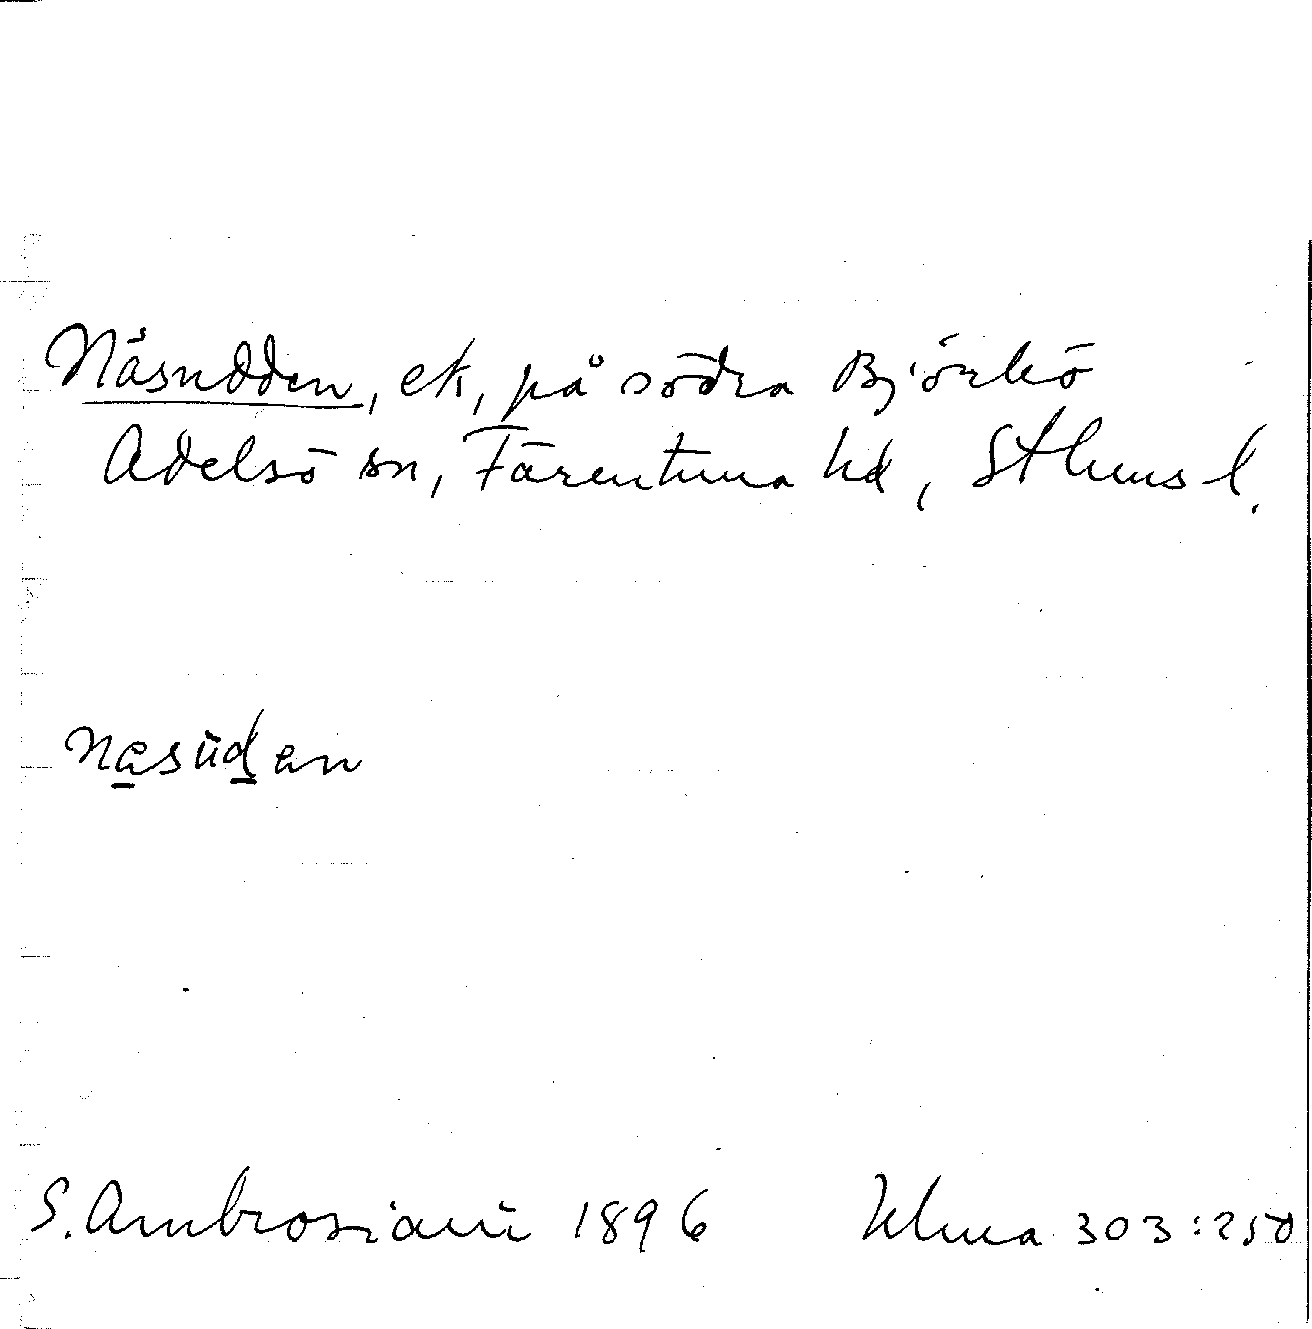 Nåsudden, ek, på södra Björkö
Adelsö sn, Färentuna hd, Sthms l.
nasüden
S. Ambrosiani 1896 Ulma 303:250